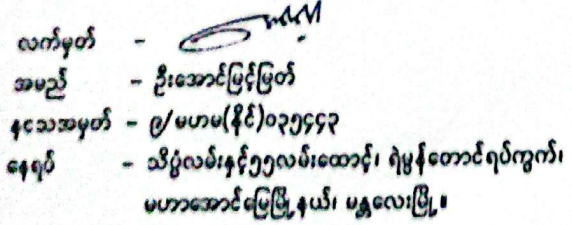 လက်မှတ် -
အမည် - ဦးအောင်မြင့်မြတ်
နငသအမှတ် - ၉/မဟမ(နိုင်)၀၃၅၄၄၃
နေရပ် - သိပ္ပံလမ်းနှင့်၅၅လမ်းထောင့်၊ ရဲမွန်တောင်ရပ်ကွက်၊
မဟာအောင်မြေမြို့နယ်၊ မန္တလေးမြို့။